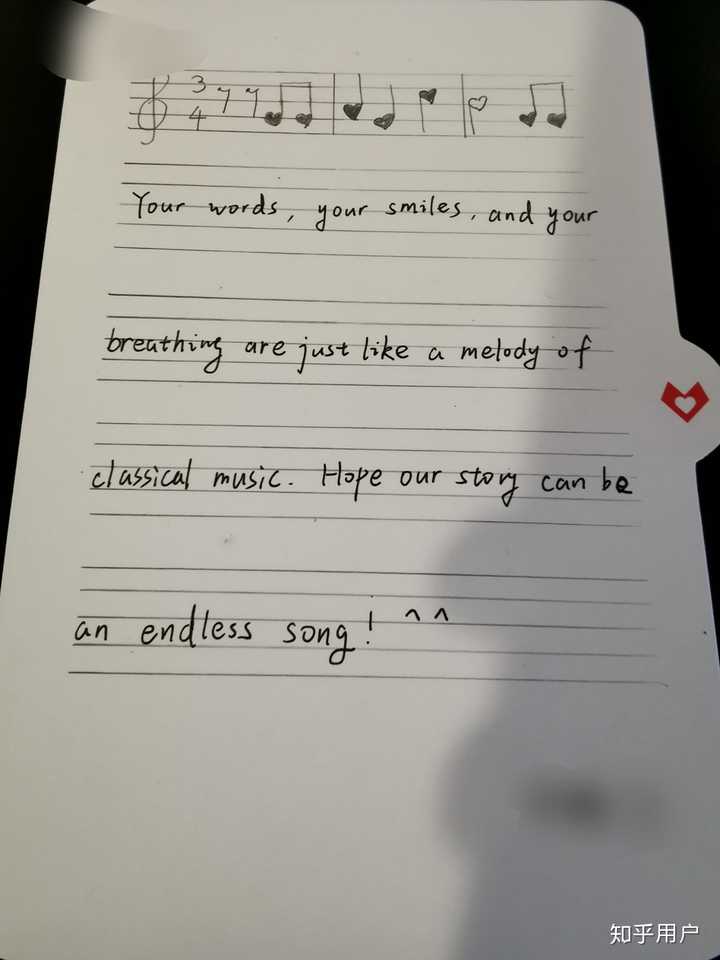 3
4
Your words, your smiles, and your
breathing are just like a melody of
classical music. Hope our story can be
an endless song! ^^
知乎用户